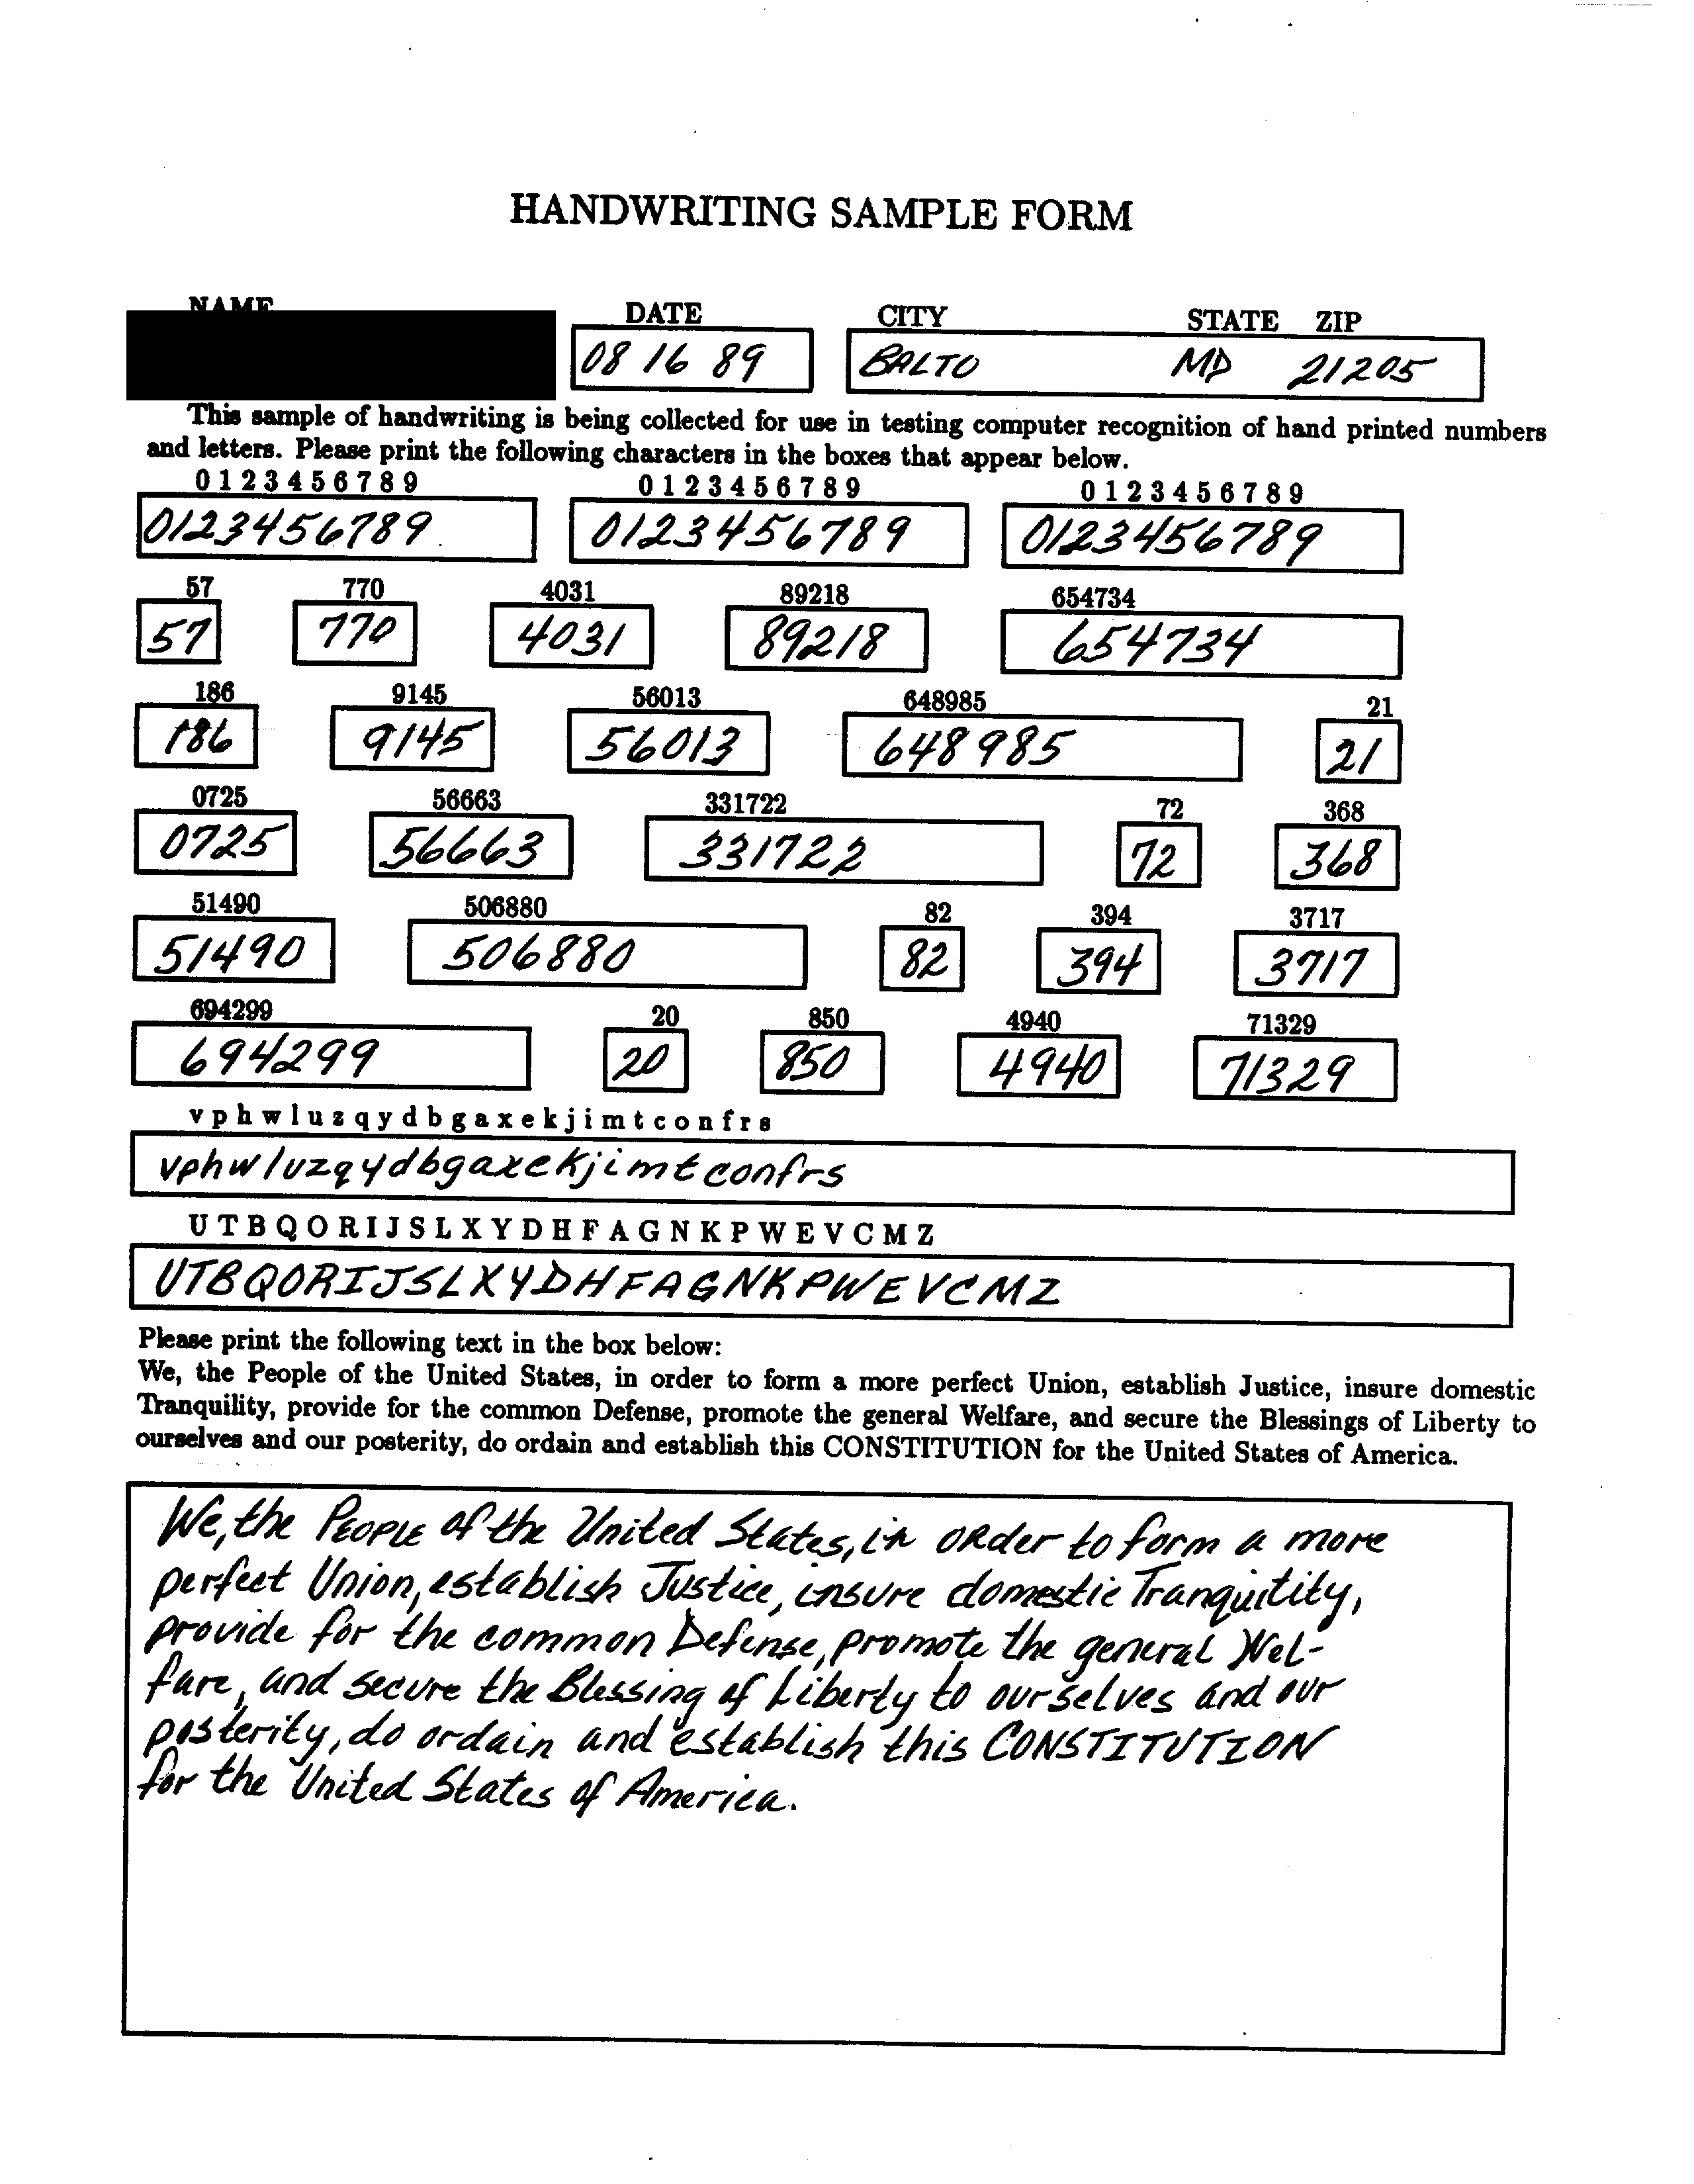 HANDWRITING SAMPLE FORM
NAME DATE CITY STATE ZIP
08 16 89 BALTO MD 21205
This sample of handwriting is being collected for use in testing computer recognition of hand printed numbers
and letters. Please print the following characters in the boxes that appear below.
0 1 2 3 4 5 6 7 8 9 0 1 2 3 4 5 6 7 8 9 0 1 2 3 4 5 6 7 8 9
0123456789 0123456789 0123456789
57 770 4031 89218 654734
57 770 4031 89218 654734
186 9145 56013 648985 21
186 9145 56013 648985 21
0725 56663 331722 72 368
0725 56663 331722 72 368
51490 506880 82 394 3717
51490 506880 82 394 3717
694299 20 850 4940 71329
694299 20 850 4940 71329
v p h w l u z q y d b g a x e k j i m t c o n f r s
vphwluzqydbgaxekjimtconfrs
U T B Q O R I J S L X Y D H F A G N K P W E V C M Z
UTBQORIJSLXYDHFAGNKPWEVCMZ
Please print the following text in the box below:
We, the People of the United States, in order to form a more perfect Union, establish Justice, insure domestic
Tranquility, provide for the common Defense, promote the general Welfare, and secure the Blessings of Liberty to
ourselves and our posterity, do ordain and establish this CONSTITUTION for the United States of America.
We, the PEOPLE of the United States, in ORder to form a more
perfect Union, establish Justice, insure domestic Tranquitity,
provide for the common Defense, promote the general Wel-
fare, and secure the Blessing of Liberty to ourselves and our
posterity, do ordain and establish this CONSTITUTION
for the United States of America.